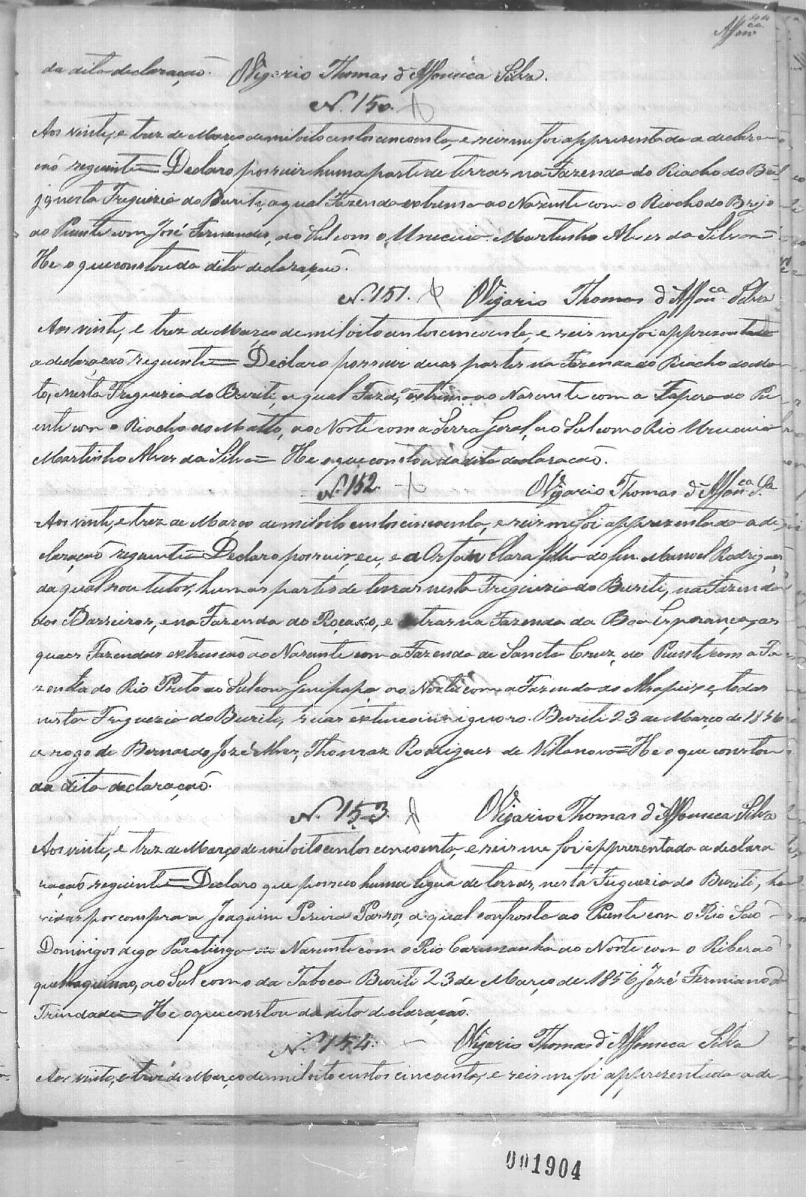 44
da dita declaração. O Vigario Thomas d'Affonseca Silva.
N. 150
Aos vinte, e trez de Março de mil oito centos cincoenta, e seis me foi appresentado a declara
ção seguinte = Declaro possuir huma parte de terras na Fazenda do Riacho do
nesta Freguezia do Buriti, a qual Fazenda extrema ao Nascente com o Riacho do Brejo
ao Puente com José Fernandes, ao Sul com o Urucuia Martinho Alves da Silva =
He o que constou da dita declaração.
N. 151 O Vigario Thomas d'Affonca Silva
Aos vinte, e trez de Março de mil oito centos cincoenta, e seis me foi appresentado
a declaração seguinte = Declaro possuir duas partes na Fazenda do Riacho do Ma
to, nesta Freguezia do Buriti, a qual Fazda extrema ao Nascente com a Tapera ao Pu
ente com o Riacho do Matto, ao Norte com a Serra Geral, ao Sul com o Rio Urucuia
Martinho Alves da Silva = He o que constou da dita declaração.
N. 152 O Vigario Thomas d'Affonca Sa
Aos vinte, e trez de Março de mil oito centos cincoenta, e seis me foi appresentado a de
claração seguinte = Declaro possuir, eu, e a Orfan Clara filha do fin. Manoel Rodrigues
da qual sou tutor, humas partes de terras nesta Freguezia do Buriti, na Fazenda
dos Barreiros, e na Fazenda do Roçado, e outras na Fazenda da Boa Esperança, as
quaes Fazendas extremão ao Nascente com a Fazenda de Sancta Cruz, ao Puente com a Fa
zenda do Rio Preto ao Sul com Genipapo, ao Norte com a Fazenda do e todas
nesta Freguezia do Buriti, suas extencoins ignoro. Buriti 23 de Março de 1856
a rogo de Bernardo José Alves, Thomaz Rodrigues de Villanova = He o que constou
da dita declaração.
N. 153 O Vigario Thomas d'Affonseca Silva
Aos vinte, e trez de Março de mil oito centos cincoenta, e seis me foi appresentado a declara
ração seguinte = Declaro que possuo huma legua de terras, nesta Freguezia do Buriti, ha
vidas por compra a Joaquim Pereira a qual confronta ao Puente com o Rio São
Domingos digo Paratinga ao Nascente com o Rio Carinhanha ao Norte com o Riberão
que ao Sul com o da Taboca Buriti 23 de Março de 1856 José Fermiano da
Trindade = He o que constou da dita declaração.
N. 154 O Vigario Thomas d'Affonseca Silva
Aos vinte, e trez de Março de mil oito centos cincoenta, e seis me foi appresentada a de
001904